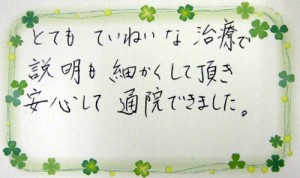 とても ていねいな 治療で
説明も 細かくして頂き
安心して 通院できました。